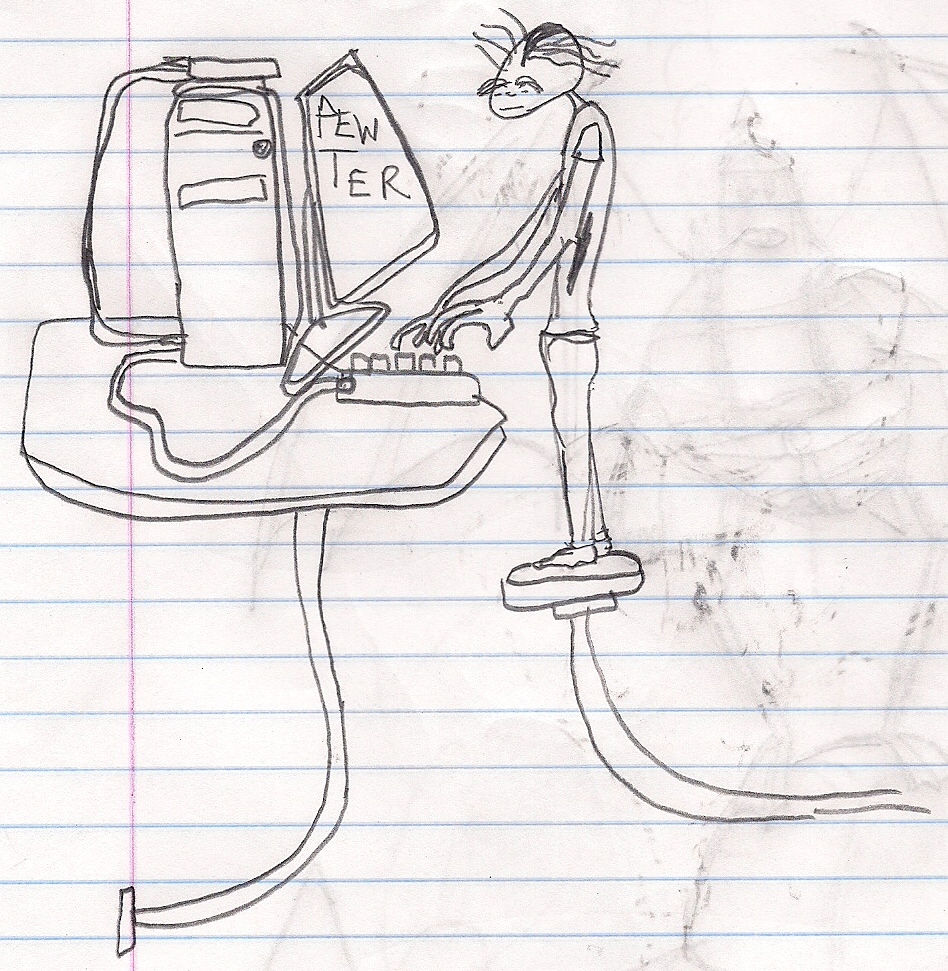 PEW
TER